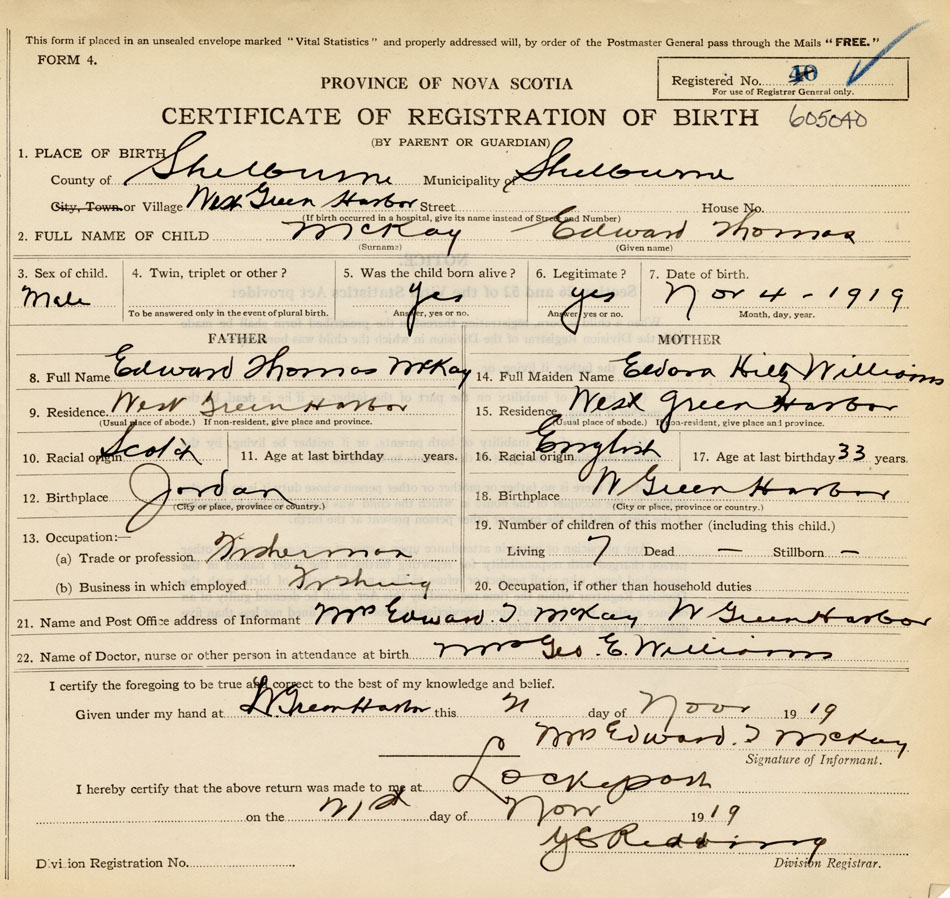 This form if placed in an unsealed envelope marked "Vital Statistics" and properly addressed will, by order of the Postmaster General pass through the Mails "FREE."
FORM 4.
Registered No. 40
For use of Registrar General only.
PROVINCE OF NOVA SCOTIA
CERTIFICATE OF REGISTRATION OF BIRTH 605040
(BY PARENT OR GUARDIAN)
1. PLACE OF BIRTH
County of Shelburne Municipality of Shelburne
City, Town or Village West Green Harbor Street House No.
(If birth occurred in a hospital, give its name instead of Street and Number)
2. FULL NAME OF CHILD McKay Edward Thomas
(Surname) (Given name)
3. Sex of child. 4. Twin, triplet or other? 5. Was the child born alive? 6. Legitimate? 7. Date of birth.
Male Yes yes Nov 4 - 1919
To be answered only in the event of plural birth. Answer, yes or no. Answer, yes or no. Month, day, year.
FATHER
8. Full Name Edward Thomas McKay
9. Residence West Green Harbor
(Usual place of abode.) If non-resident, give place and province.
10. Racial origin Scotch 11. Age at last birthday years.
12. Birthplace Jordan
(City or place, province or country.)
13. Occupation:—
(a) Trade or profession Fisherman
(b) Business in which employed Fishing
MOTHER
14. Full Maiden Name Eldora Williams
15. Residence West Green Harbor
(Usual place of abode.) If non-resident, give place and province.
16. Racial origin English 17. Age at last birthday 33 years.
18. Birthplace W Green Harbor
(City or place, province or country.)
19. Number of children of this mother (including this child.)
Living 7 Dead — Stillborn —
20. Occupation, if other than household duties
21. Name and Post Office address of Informant Mrs Edward. T McKay W Green Harbor
22. Name of Doctor, nurse or other person in attendance at birth Mrs Geo. E. Williams
I certify the foregoing to be true and correct to the best of my knowledge and belief.
Given under my hand at W. Green Harbor this day of Nov 1919
Mrs Edward. T McKay
Signature of Informant.
I hereby certify that the above return was made to me at Lockeport
on the day of Nov 1919
Redding
Division Registrar.
Division Registration No.